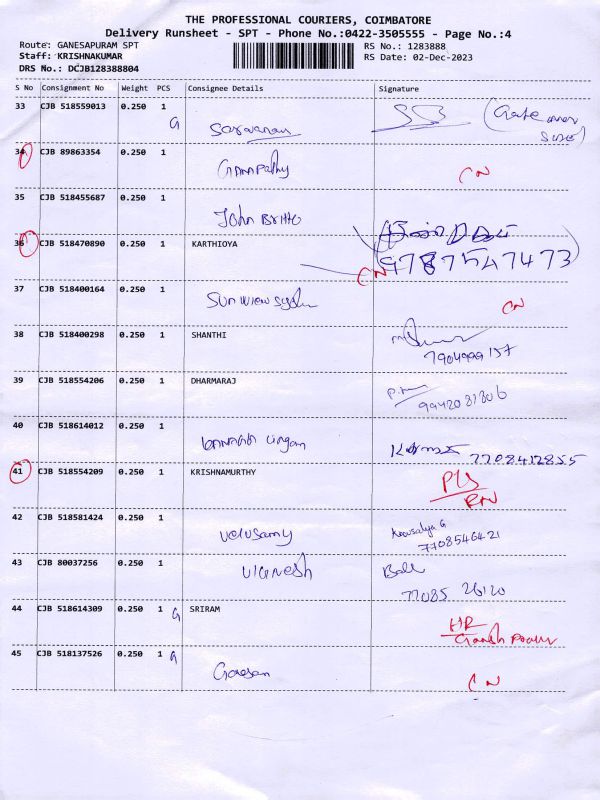 THE PROFESSIONAL COURIERS, COIMBATORE
Delivery Runsheet - SPT - Phone No.:0422-3505555 - Page No.:4
Route: GANESAPURAM SPT
RS No.: 1283888
Staff: KRISHNAKUMAR
RS Date: 02-Dec-2023
DRS No.: DCJB128388804
S No Consignment No Weight PCS Consignee Details Signature
33 CJB 518559013 0.250 1 G Saravanan
34 CJB 89863354 0.250 1 Ganapathy CN
35 CJB 518455687 0.250 1 John Britto
36 CJB 518470890 0.250 1 KARTHIOYA
CN 9787547473
37 CJB 518400164 0.250 1 CN
38 CJB 518400298 0.250 1 SHANTHI
7904999157
39 CJB 518554206 0.250 1 DHARMARAJ
9942081806
40 CJB 518614012 0.250 1
7708412855
41 CJB 518554209 0.250 1 KRISHNAMURTHY
RN
42 CJB 518581424 0.250 1 Velusamy Kousalya G
7708546421
43 CJB 80037256 0.250 1 Vignesh Bala
77085 26120
44 CJB 518614309 0.250 1 G SRIRAM
45 CJB 518137526 0.250 1 G Ganesan CN